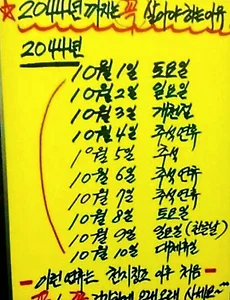 ☆2044년 까지는 꼭 살아야 하는 이유
2044년
10월 1일 토요일
10월 2일 일요일
10월 3일 개천절
10월 4일 추석연휴
10월 5일 추석
10월 6일 추석연휴
10월 7일 추석연휴
10월 8일 토요일
10월 9일 일요일 (한글날)
10월 10일 대체휴일
- 이런 연휴는 천지창조 이후 처음 -
꼭 꼭 오래오래 사세요~